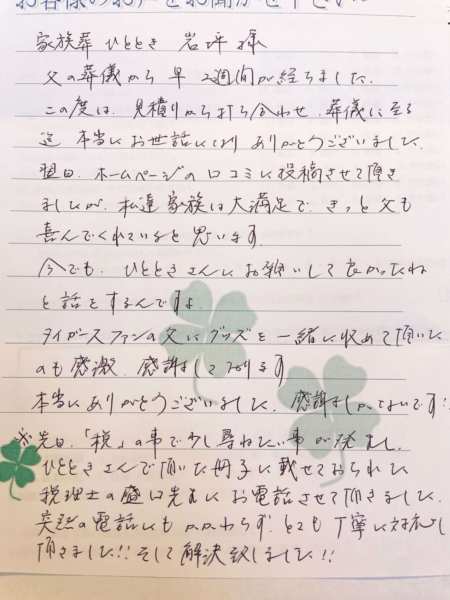 お客様のお声をお聞かせ下さい
家族葬 ひととき 岩坪様
父の葬儀から早2週間が経ちました.
この度は、見積りから打ち合わせ、葬儀に至る
迄 本当にお世話になり ありがとうございました.
翌日、ホームページの口コミに投稿させて頂き
ましたが、私達家族は大満足で、きっと父も
喜んでくれていると思います
今でも、ひとときさんにお願いして良かったね
と話をするんですよ
タイガースファンの父にグッズを一緒に収めて頂いた
のも感激、感謝しております
本当にありがとうございました、感謝しかないです!!
※先日、「税」の事で少し尋ねたい事が発生し、
ひとときさんで頂いた冊子に載せておられた
税理士の 先生にお電話させて頂きました.
突然の電話にもかかわらず、とても丁寧に対応して
頂きました!! そして解決致しました!!